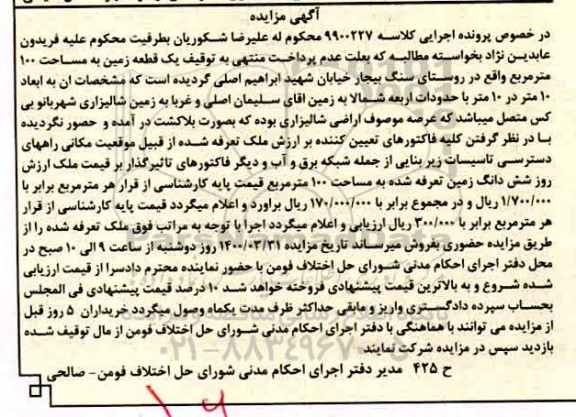 آگهی مزایده
در خصوص پرونده اجرایی کلاسه ۹۹۰۰۲۲۷ محکوم له علیرضا شکوریان بطرفیت محکوم علیه فریدون
عابدین نژاد بخواسته مطالبه که بعلت عدم پرداخت منتهی به توقیف یک قطعه زمین به مساحت ۱۰۰
مترمربع واقع در روستای سنگ بیجار خیابان شهید ابراهیم اصلی گردیده است که مشخصات ان به ابعاد
۱۰ متر در ۱۰ متر با حدودات اربعه شمالا به زمین اقای سلیمان اصلی و غربا به زمین شالیزاری شهربانو بی
کس متصل میباشد که عرصه موصوف اراضی شالیزاری بوده که بصورت بلاکشت در آمده و حصور نگردیده
با در نظر گرفتن کلیه فاکتورهای تعیین کننده بر ارزش ملک تعرفه شده از قبیل موقعیت مکانی راههای
دسترسی تاسیسات زیر بنایی از جمله شبکه برق و آب و دیگر فاکتورهای تاثیرگذار بر قیمت ملک ارزش
روز شش دانگ زمین تعرفه شده به مساحت ۱۰۰ مترمربع قیمت پایه کارشناسی از قرار هر مترمربع برابر با
۱/۷۰۰/۰۰۰ ریال و در مجموع برابر با ۱۷۰/۰۰۰/۰۰۰ ریال براورد و اعلام میگردد قیمت پایه کارشناسی از قرار
هر مترمربع برابر با ۳۰۰/۰۰۰ ریال ارزیابی و اعلام میگردد اجرا با توجه به مراتب فوق ملک تعرفه شده را از
طریق مزایده حضوری بفروش میرساند تاریخ مزایده ۱۴۰۰/۰۳/۳۱ روز دوشنبه از ساعت ۹ الی ۱۰ صبح در
محل دفتر اجرای احکام مدنی شورای حل اختلاف فومن با حضور نماینده محترم دادسرا از قیمت ارزیابی
شده شروع و به بالاترین قیمت پیشنهادی فروخته خواهد شد ۱۰ درصد قیمت پیشنهادی فی المجلس
بحساب سپرده دادگستری واریز و مابقی حداکثر ظرف مدت یکماه وصول میگردد خریداران ۵ روز قبل
از مزایده می توانند با هماهنگی با دفتر اجرای احکام مدنی شورای حل اختلاف فومن از مال توقیف شده
بازدید سپس در مزایده شرکت نمایند
ح ۴۲۵ مدیر دفتر اجرای احکام مدنی شورای حل اختلاف فومن- صالحی
۰۲۱-۸۸۳۴۹۶۷۰-۵